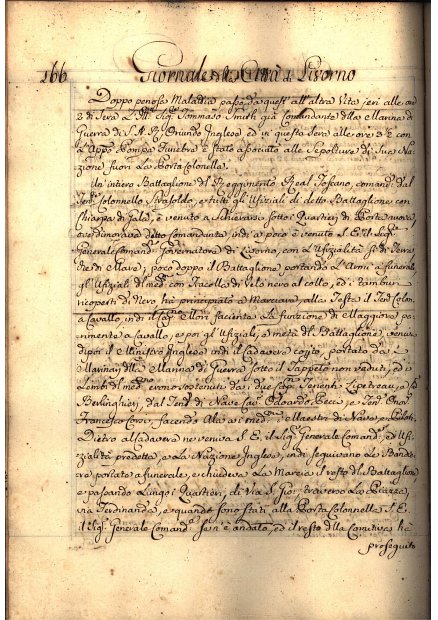 166 Giornale della Città di Livorno
Doppo penosa Maladia passò da quest'all'altra Vita jeri alle ore
2 di Sera l'Ill. Sig. Tommaso Smith già Comandante della Marina di
Guerra di S. A. R. Oriundo Inglese, ed in questa Sera alle ore 3 è con
Pompa Funebre è stato associato alle Sepolture di Sua Na-
zione fuori la Porta Colonella.
Un'intiero Battaglione del Reggimento Real Toscano, comand. dal
Ten. Colonnello, e tutti gli Ufiziali di detto Battaglione con
Chiarpa di Gala, è venuto a schierarsi sotto i Quartieri di Porta nuova,
ove dimorava detto Comandante, indi a poco è venuto S. E. il Sig.
Generale Comand. Governatore di Livorno, con l'Ufizialità sì di Terra
che di Mare, poco doppo il Battaglione portando l'Armi a funerale,
gli Ufiziali di med. con Tracolla di Velo nero al collo, ed i Tamburi
ricoperti di Nero, hà principiato a Marciare, alla Testa il Ten. Colon.
a Cavallo, indi il facienta la funzione di Maggiore pari-
mente a cavallo, e poi gli Ufiziali, a metà del Battaglione veniva
dipoi il Ministro Inglese indi il Cadavere portato da
Marinari della Marina di Guerra sotto il Tappeto non veduti, ed i
Lembi del med. erono sostenuti dai due Cap.
Berlinghieri, dal Ten. di Nave Cav. Orlando
Francesco Corsi, facendo Ala ai med. i Maestri di Nave, e Piloti
Dietro al Cadavere ne veniva S. E. il Sig. Generale Comand. ed Ufi-
zialità predetta, e la Nazione Inglese, indi seguivano le Bandie-
re portate a funerale, e chiudeva la Marcia il resto del Battaglione
e passando Lungo i Quartieri, di Via S. Gio. traverso la Piazza,
via Ferdinanda, e quando sono stati alla Porta Colonnella S. E.
il Sig. Generale Comand. se n'è andato, ed il resto della Comitiva hà
proseguito